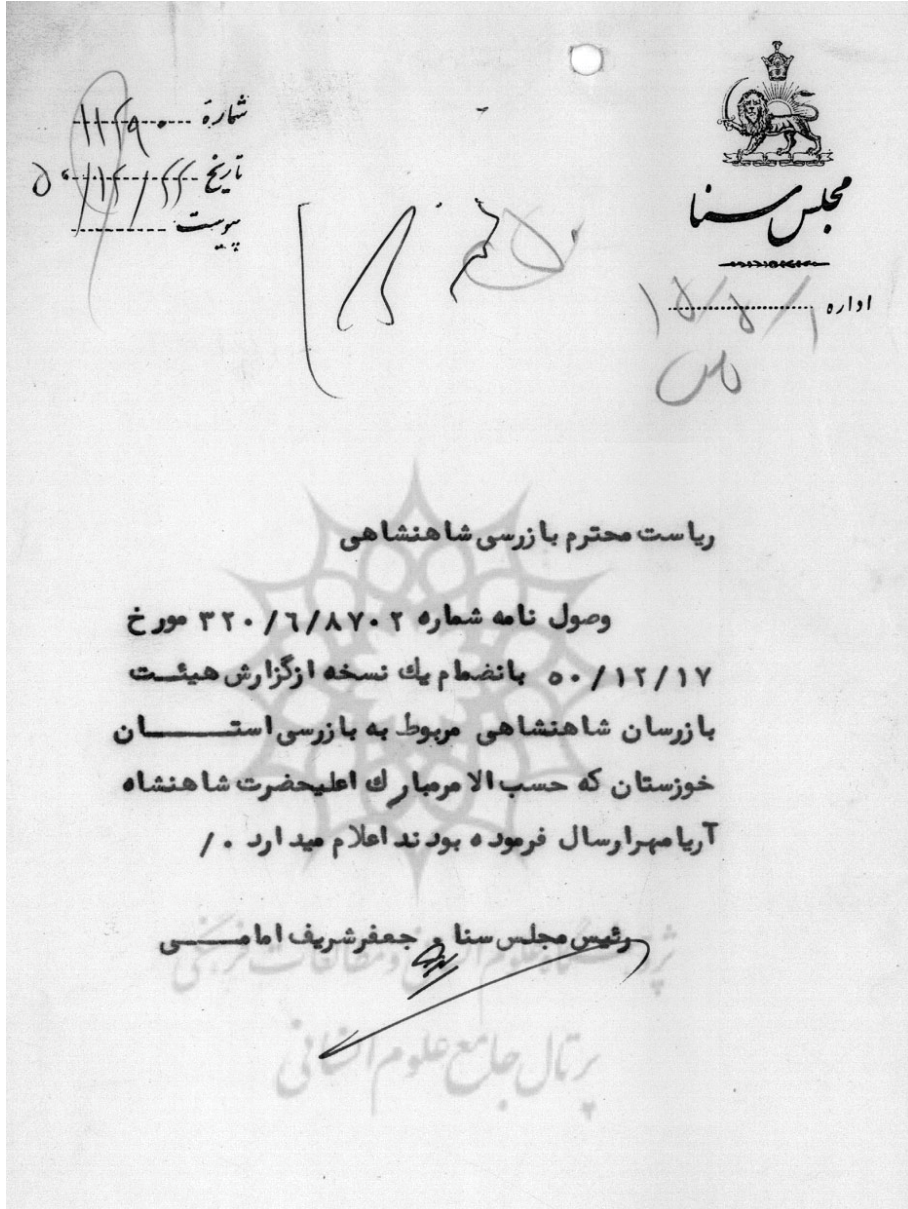 مجلس سنا
اداره
شماره ۱۱۲۹۰
تاریخ ۵۰/۱۲/۲۲
پیوست
ریاست محترم بازرسی شاهنشاهی
وصول نامه شماره ۳۲۰/۶/۸۷۰۲ مورخ
۵۰/۱۲/۱۷ بانضمام یك نسخه ازگزارش هیئت
بازرسان شاهنشاهی مربوط به بازرسی استان
خوزستان که حسب الامرمبارك اعلیحضرت شاهنشاه
آریامهرارسال فرموده بودند اعلام میدارد ./
رئیس مجلس سنا جعفرشریف امامی
پژوهشگاه علوم انسانی و مطالعات فرهنگی
پرتال جامع علوم انسانی